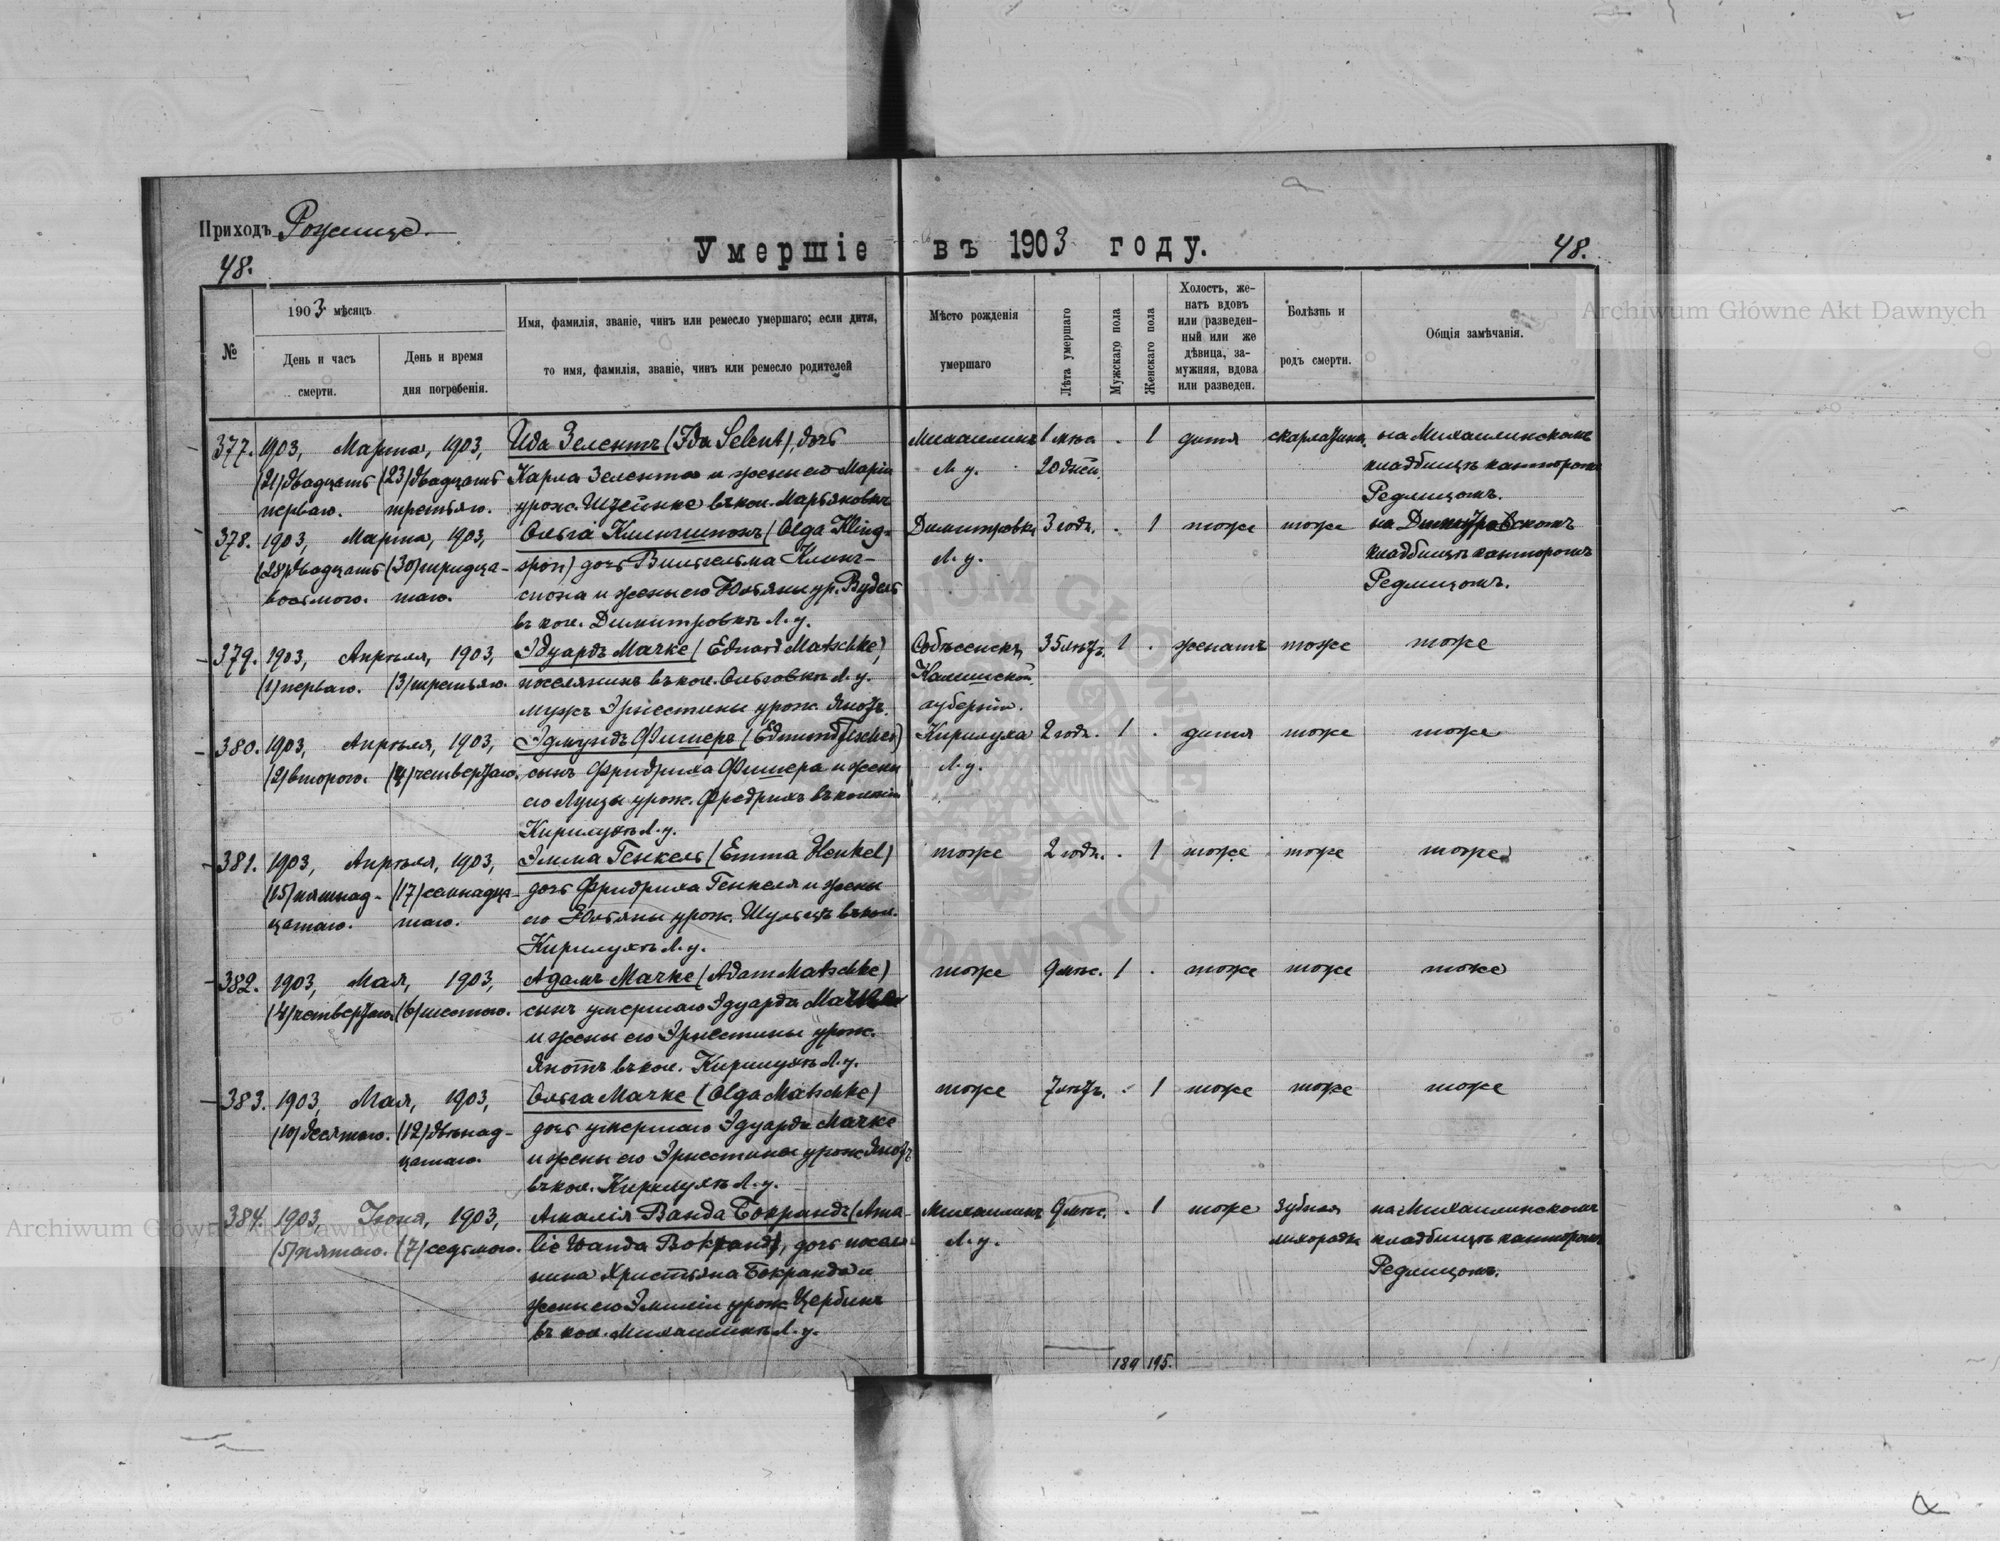 Приходъ Рожище
Умершіе въ 1903 году.
48.
48.
№
1903 мѣсяцъ
День и часъ смерти.
День и время дня погребенія.
Имя, фамилія, званіе, чинъ или ремесло умершаго; если дитя,
то имя, фамилія, званіе, чинъ или ремесло родителей
Мѣсто рожденія
умершаго
Лѣта умершаго
Мужскаго пола
Женскаго пола
Холостъ, же-
натъ вдовъ
или разведен-
ный или же
дѣвица, за-
мужняя, вдова
или разведен.
Болѣзнь и
родъ смерти.
Общія замѣчанія.
377. 1903, Марта, 1903, Ида Зелентъ (Ida Selent), дочь Михаилинъ 1 мѣс. . 1 дитя скарлатина, на Михаилинскомъ
(21) двадцать (23) двадцать Карла Зелента и жены его Маріи Л. у. 20 дней. кладбищѣ канторомъ
перваго. третьяго. урож. въ кол. Редлицомъ.
378. 1903, Марта, 1903, Ольга Клингшпонъ (Olga Kling- Димитровка 3 года. . 1 тоже тоже на Димитровскомъ
(28) двадцать (30) тридца- spon) дочь Вильгельма Клинг- Л. у. кладбищѣ канторомъ
восьмого. таго. и жены его Юльяны ур. Редлицомъ.
въ кол. Димитровкѣ Л. у.
379. 1903, Апрѣля, 1903, Эдуардъ Мачке (Eduard Matschke) 35 лѣтъ. 1 . женатъ тоже тоже
(1) перваго. (3) третьяго. поселянинъ въ кол. Ольговкѣ Л. у. Калишской
мужъ Эрнестины урож. Янотъ. губерніи.
380. 1903, Апрѣля, 1903, Эдмундъ Фишеръ (Edmund Fischer) Кирилуха 2 года. 1 . дитя тоже тоже
(2) второго. (4) четвертаго. сынъ Фридриха Фишера и жены Л. у.
его Луизы урож. Фредрихъ въ колоніи
Кирилухѣ Л. у.
381. 1903, Апрѣля, 1903, Эмма Генкель (Emma Henkel) тоже 2 года. . 1 тоже тоже тоже
(15) пятнад- (17) семнадца- дочь Фридриха Генкеля и жены
цатаго. таго. его Юльяны урож. Шульцъ въ кол.
Кирилухѣ Л. у.
382. 1903, Мая, 1903, Адамъ Мачке (Adam Matschke) тоже 9 мѣс. 1 . тоже тоже тоже
(4) четвертаго. (6) шестого. сынъ умершаго Эдуарда Мачке
и жены его Эрнестины урож.
Янотъ въ кол. Кирилухѣ Л. у.
383. 1903, Мая, 1903, Ольга Мачке (Olga Matschke) тоже 7 лѣтъ. . 1 тоже тоже тоже
(10) десятаго. (12) двѣнад- дочь умершаго Эдуарда Мачке
цатаго. и жены его Эрнестины урож. Янотъ
въ кол. Кирилухѣ Л. у.
384. 1903, Іюня, 1903, Амалія Ванда Бокрандъ (Ama- Михаилинъ 9 мѣс. . 1 тоже Зубная на Михаилинскомъ
(5) пятаго. (7) седьмого. lie Wanda Bokrand), дочь поселя- Л. у. лихорадка кладбищѣ канторомъ
нина Христьяна Бокранда и Редлицомъ.
жены его Эмиліи урож. Цербинъ
въ кол. Михаилинѣ Л. у.
189 195.
Archiwum Główne Akt Dawnych
Archiwum Główne Akt Dawnych